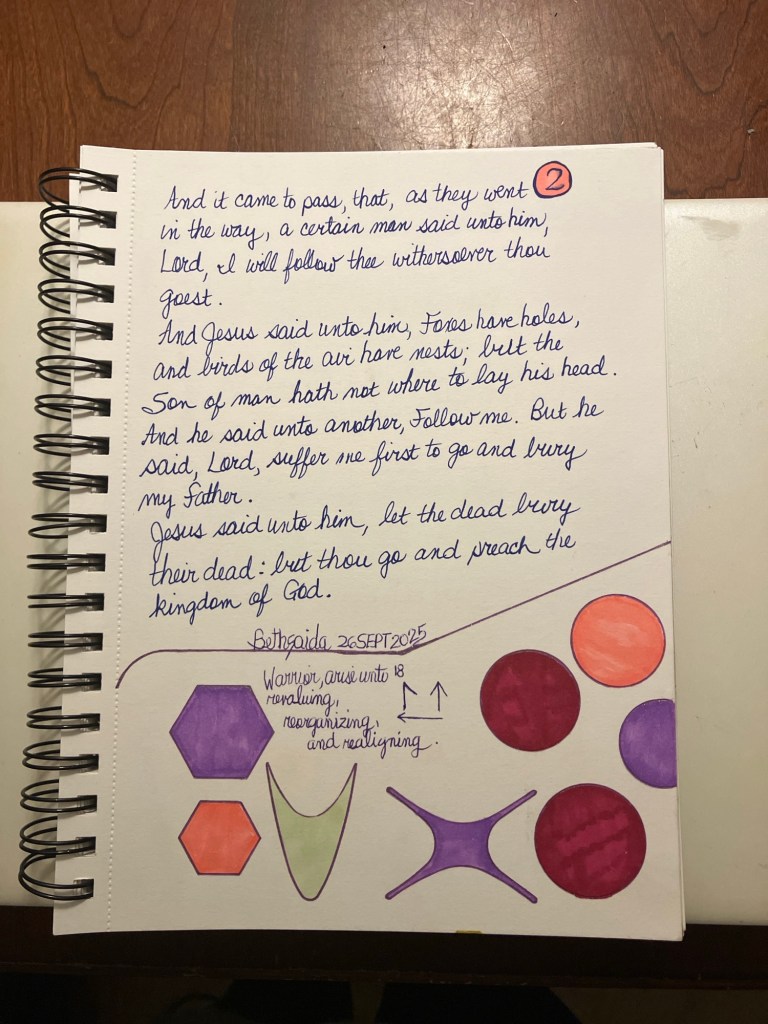 2
And it came to pass, that, as they went
in the way, a certain man said unto him,
Lord, I will follow thee withersoever thou
goest.
And Jesus said unto him, Foxes have holes,
and birds of the air have nests; but the
Son of man hath not where to lay his head.
And he said unto another, Follow me. But he
said, Lord, suffer me first to go and bury
my father.
Jesus said unto him, let the dead bury
their dead: but thou go and preach the
kingdom of God.
Bethsaida 26SEPT2025
Warrior, arise unto 18
revaluing,
reorganizing,
and realigning.